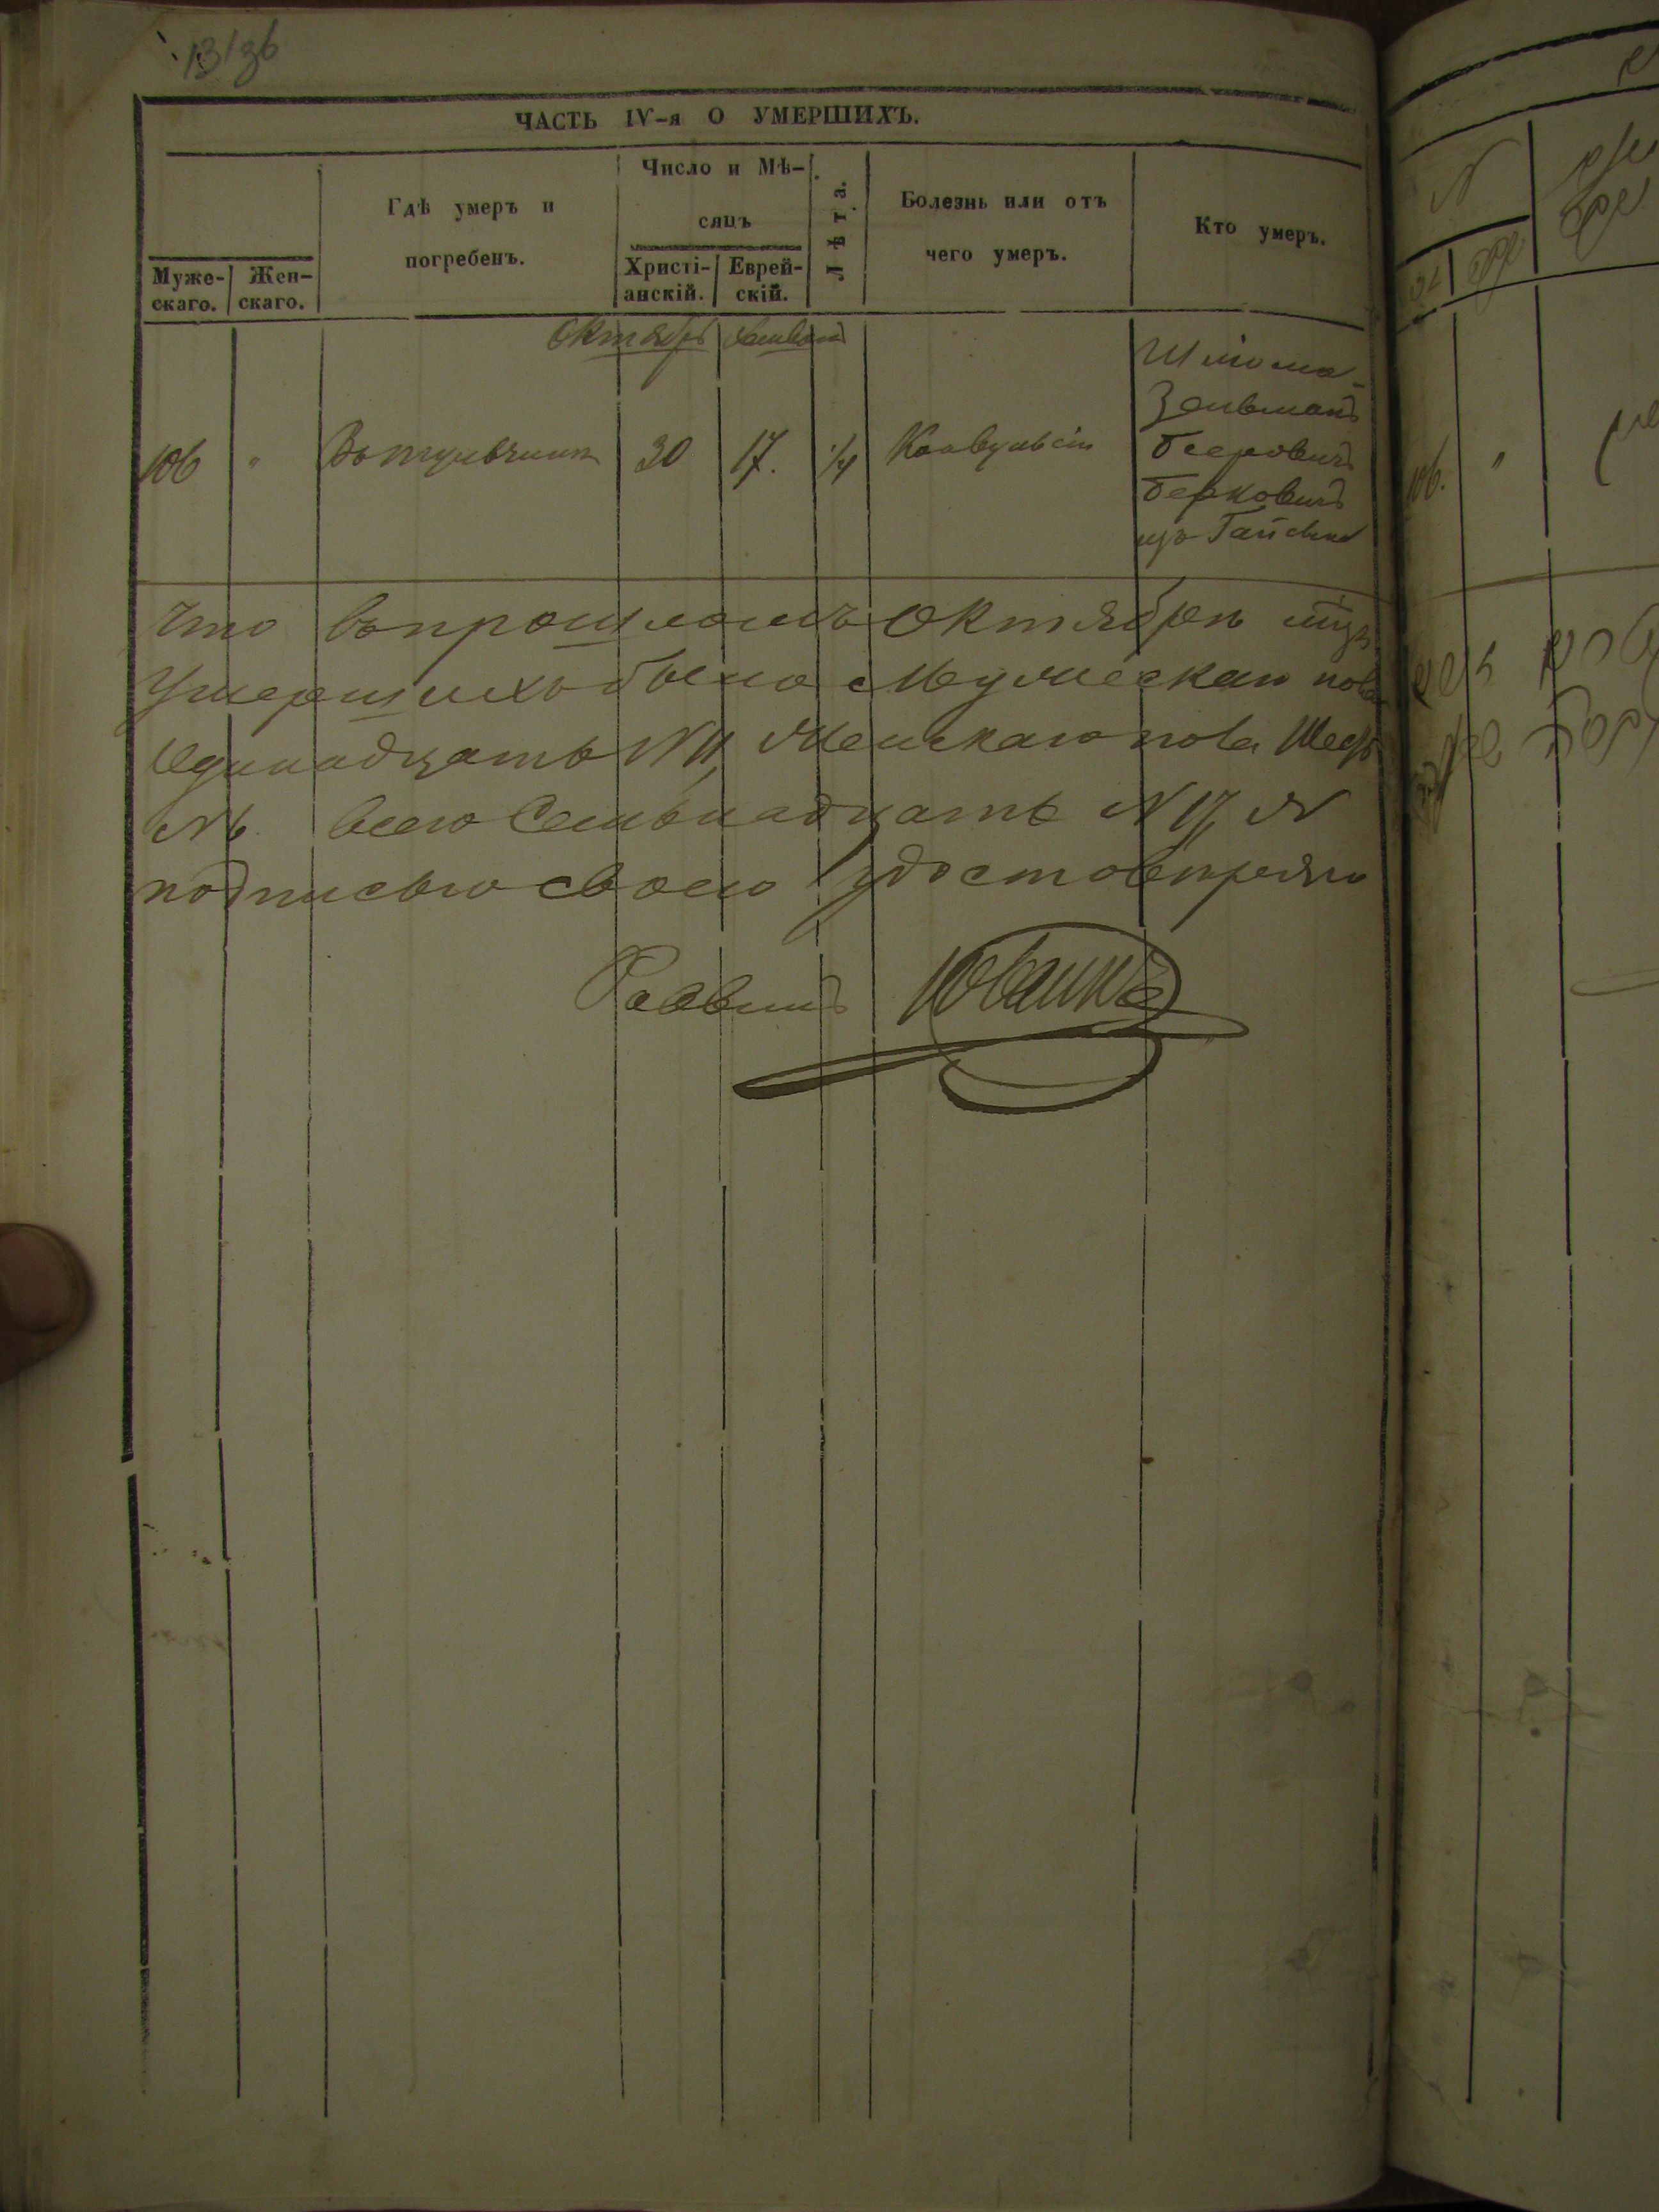 ЧАСТЬ IV-я О УМЕРШИХЪ.
Муже-
скаго.
Жен-
скаго.
Гдѣ умеръ и
погребенъ.
Число и Мѣ-
сяцъ
Христі-
анскій.
Еврей-
скій.
Лѣта.
Болезнь или отъ
чего умеръ.
Кто умеръ.
Октябрь
106 " Вътульчинѣ 30 17. 1/4 Конвульсіи
Шліома-
Зельманъ
Беровичъ
Берковичъ
изъ Гайсина
Что въпрошломъ Октябрѣ мцѣ
Умершихъ было Мужескаго пола
Единадцать N 11, Женскаго пола Шесть
N 6. всего Семьнадцать N 17, И
подписью своею удостовѣряю
Раввинъ